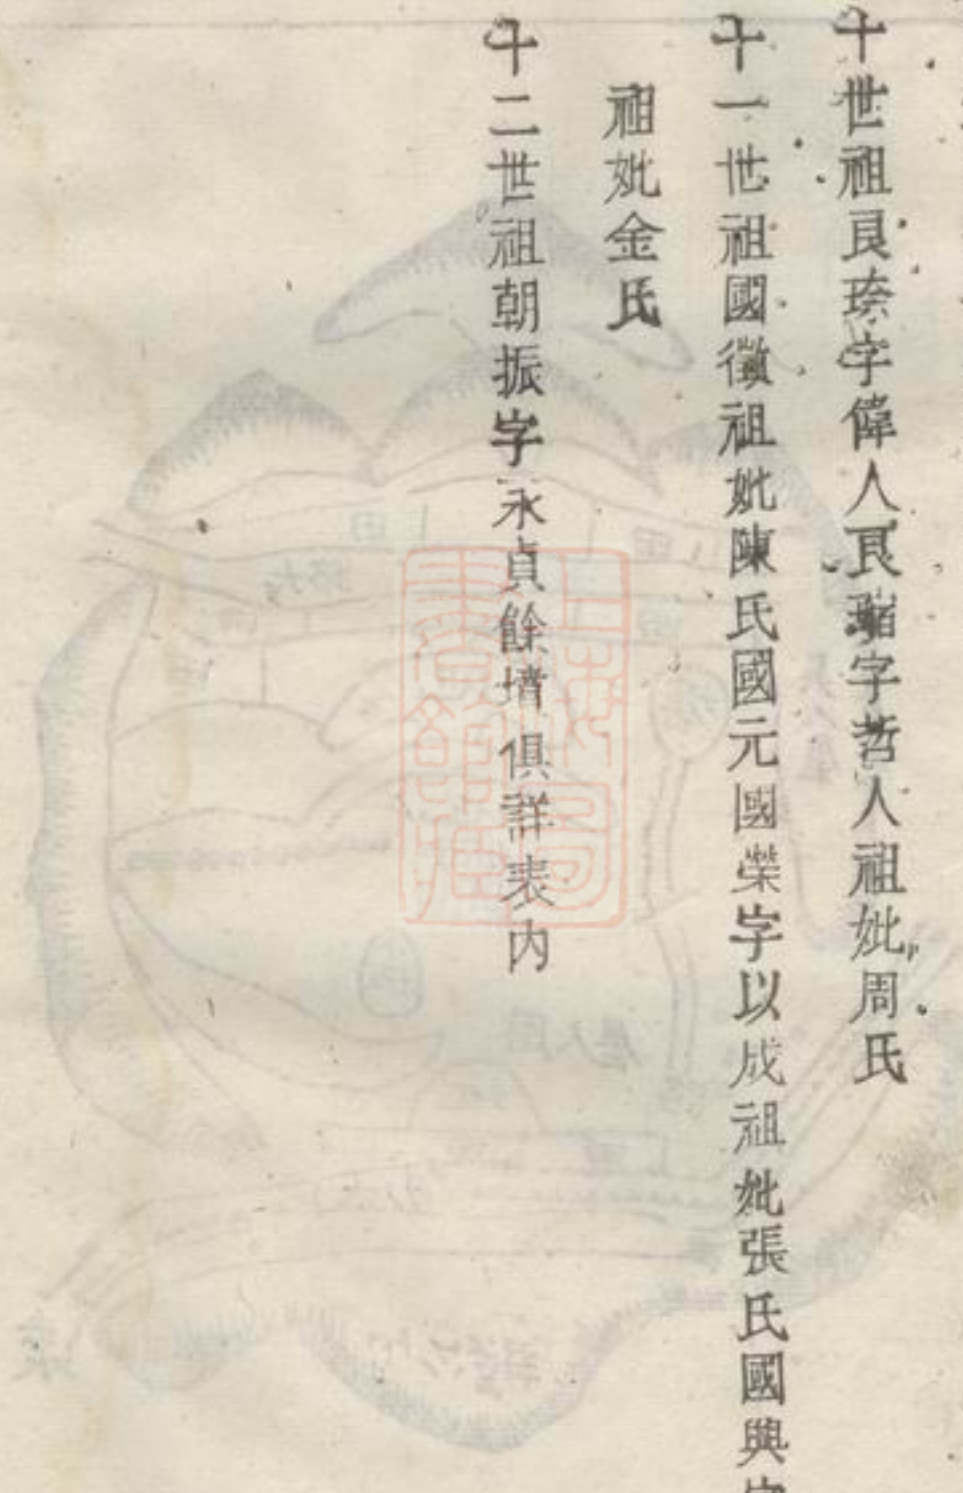 十世祖良琮字偉人良瑞字哲人祖妣周氏
十一世祖國徵祖妣陳氏國元國榮字以成祖妣張氏國興字
祖妣金氏
十二世祖朝振字永貞餘墳俱詳表内
上海圖書館藏